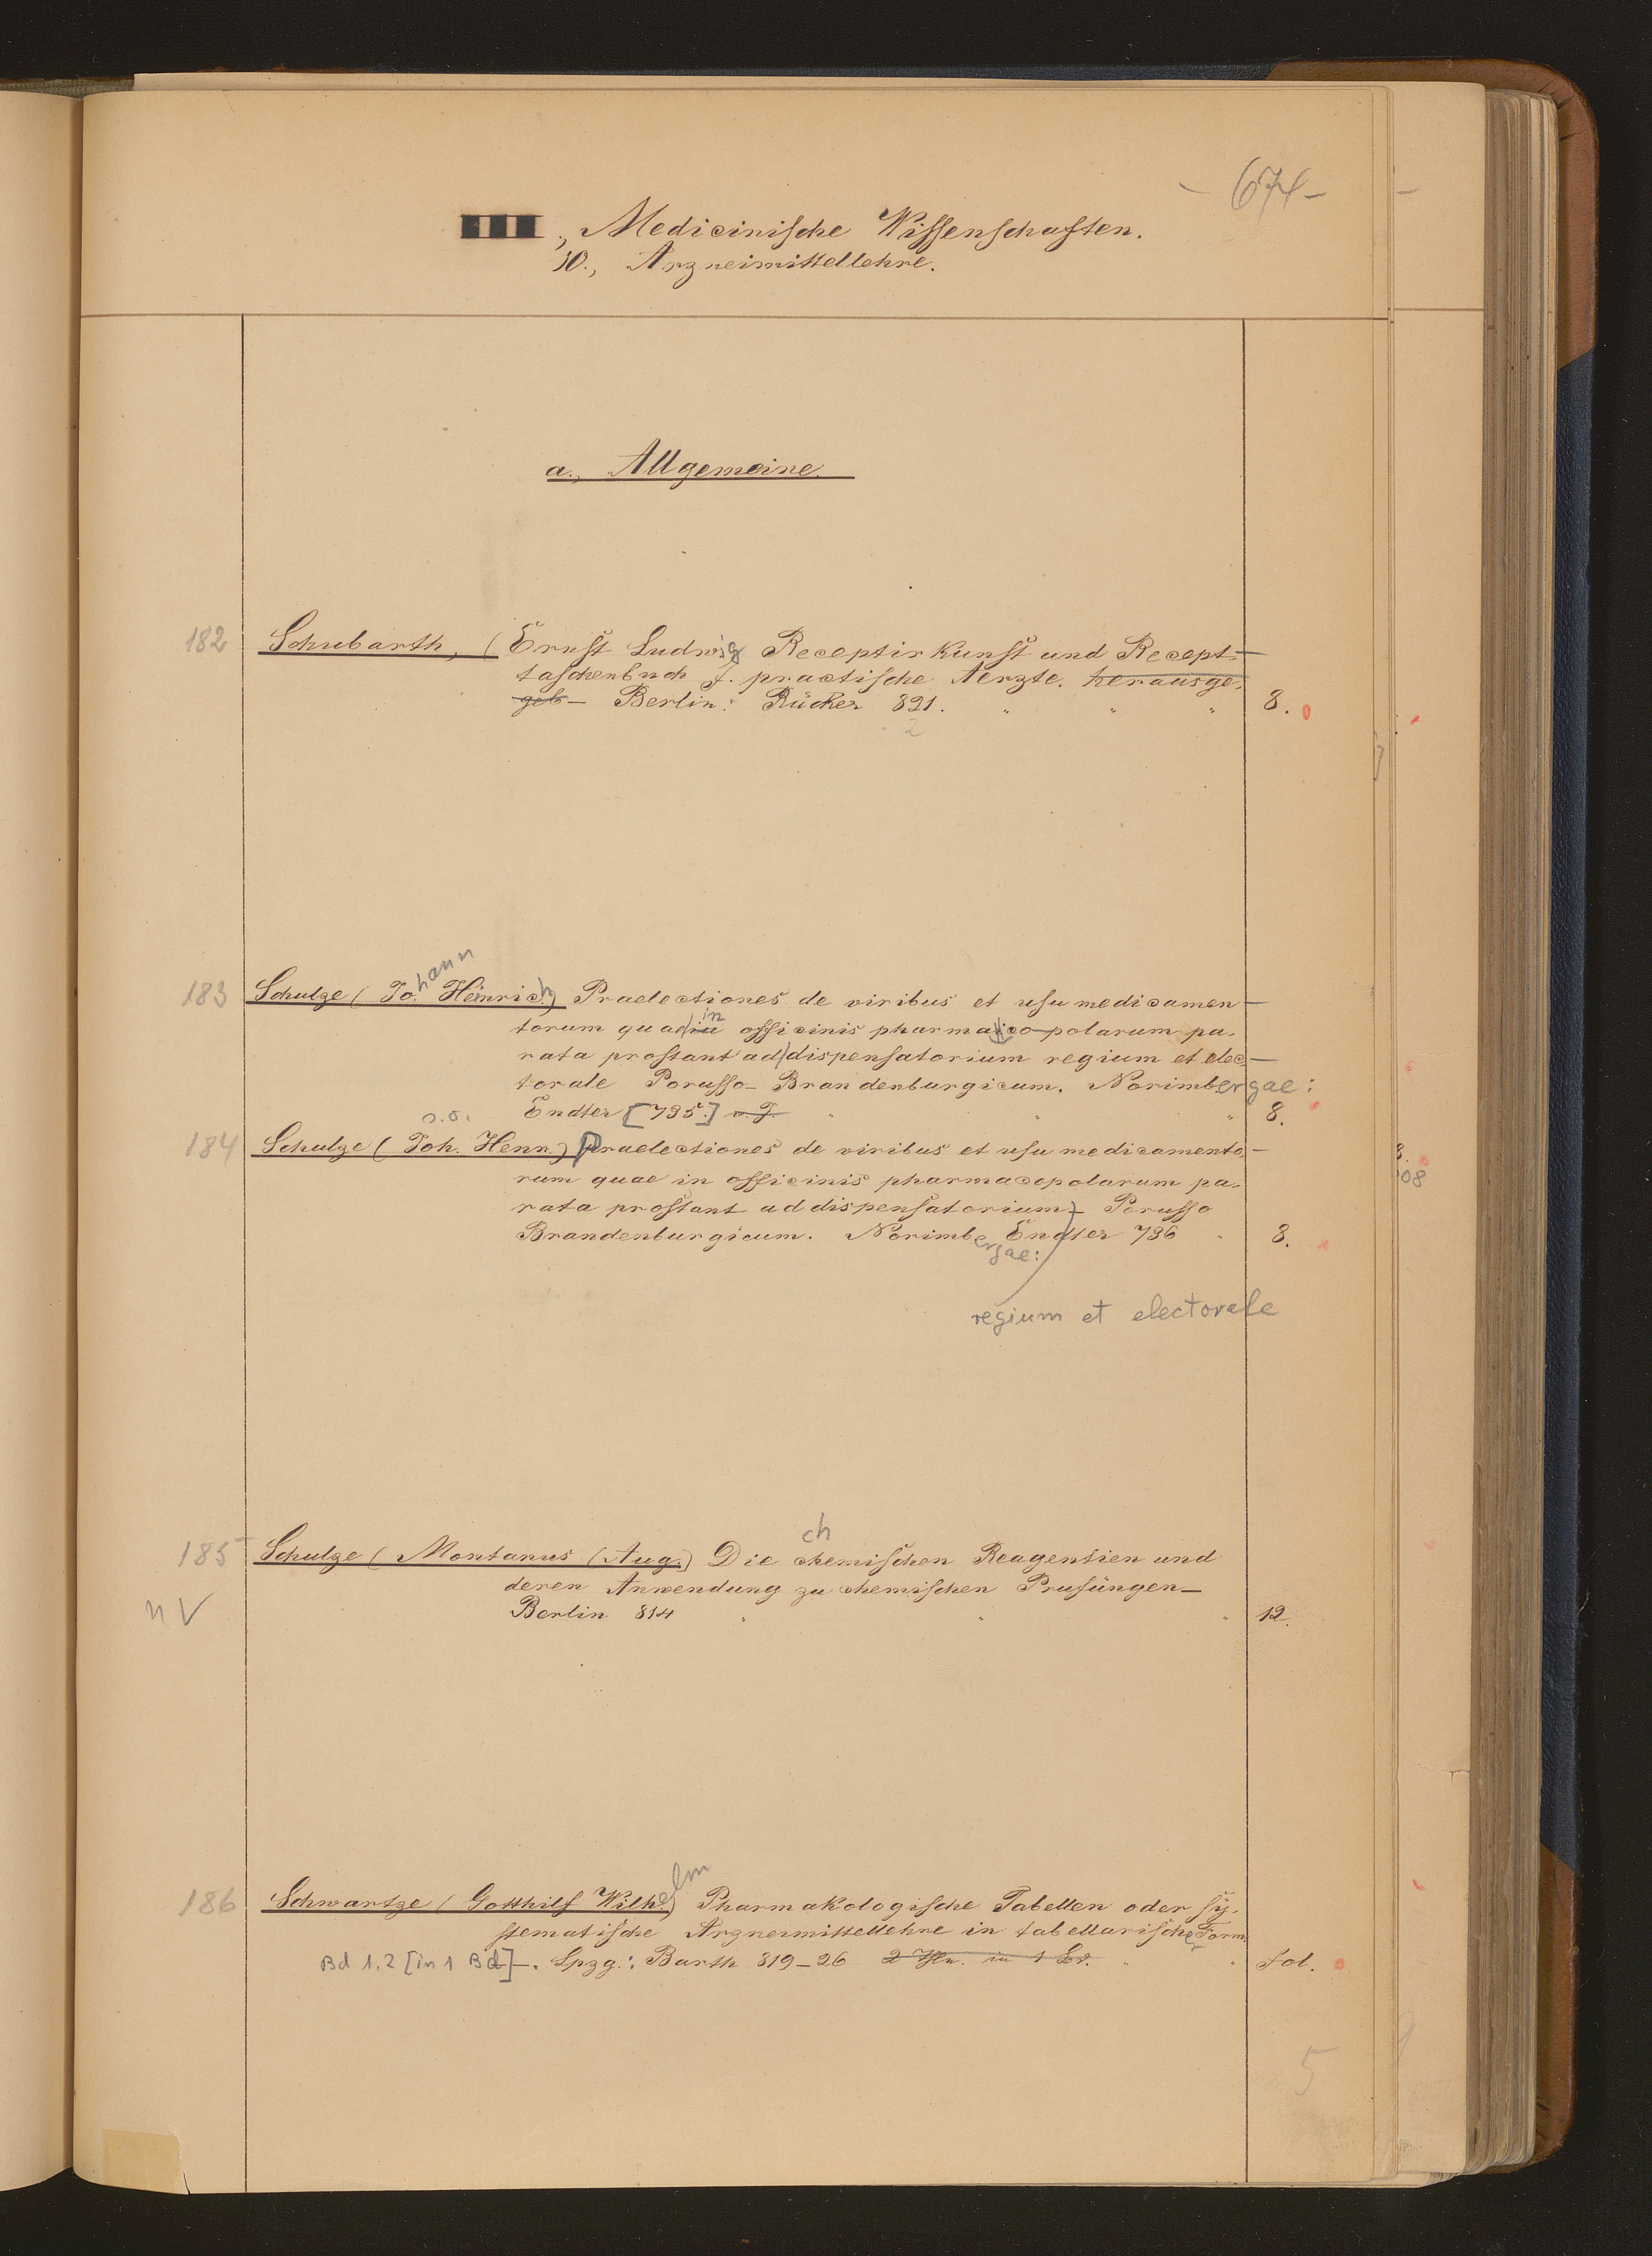 - 674 -
, Medicinische Wissenschaften.
10., Arzneimittellehre.
a., Allgemeine.
182 Schubarth, (Ernst Ludwig Receptirkunst und Recept-
taschenbuch f. practische Aerzte. herausge-
geb - Berlin: Rücker 821. 8.
2
hann
183 Schulze (Jo. Heinrich) Praelectiones de viribus et usu medicamen-
in
torum quae in officinis pharmaico-polarum pa-
rata prostant ad dispensatorium regium et elec-
torale Porusso-Brandenburgicum. Norimbergae:
Endter [735.] o. J. 8.
s. o.
184 Schulze (Joh. Henr.) Praelectiones de viribus et usu medicamento-
rum quae in officinis pharmacopolarum pa-
rata prostant ad dispensatorium Porusso
Brandenburgicum. Norimb Endter 736 8.
ergae:
regium et electorale
ch
185 Schulze (Montanus (Aug.) Die chemischen Reagentien und
deren Anwendung zu chemischen Prufüngen-
n V Berlin 814 12.
elm
186 Schwartze (Gotthilf Wilh.) Pharmakologische Tabellen oder sy-
stematische Arzneimittellehre in tabellarischer Form.
Bd 1.2 [in 1 Bd]-. Lpzg.: Barth 819-26 2 Thle. in 1 Bd. Fol.
5